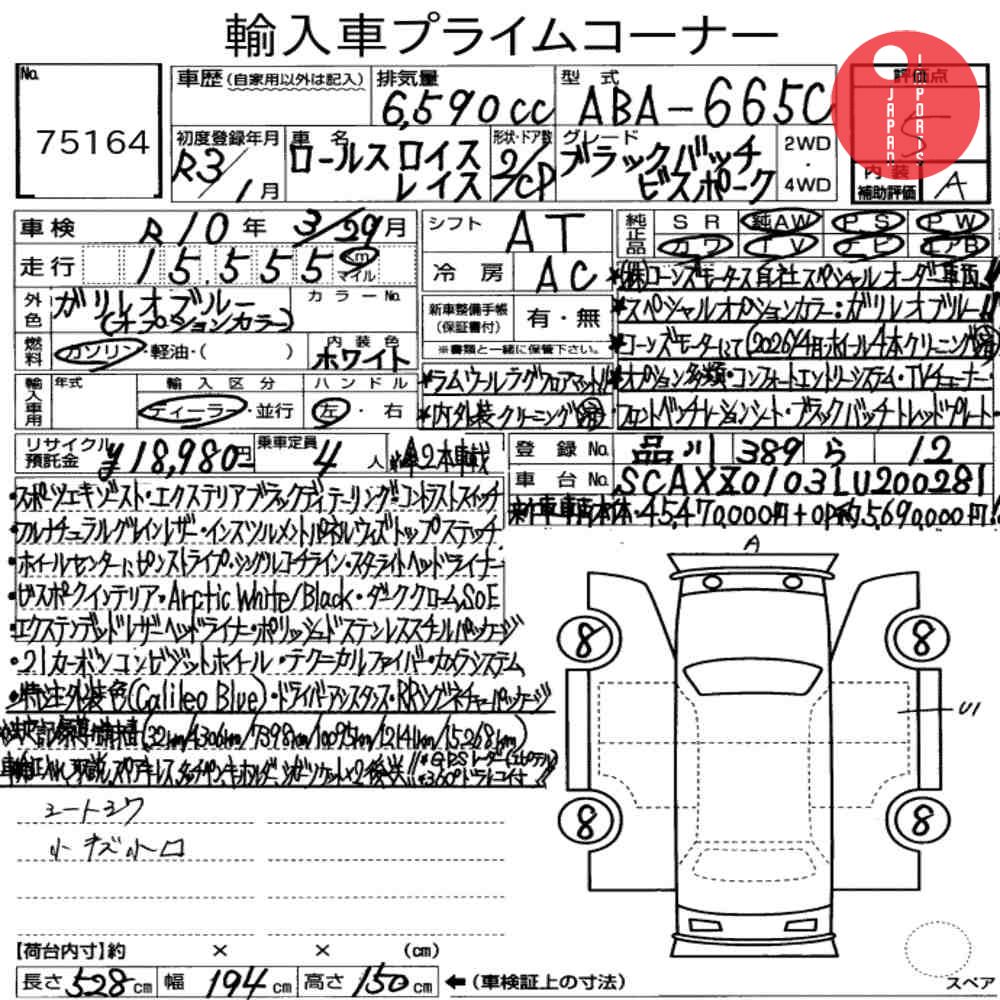 輸入車プライムコーナー
No. 75164
車歴(自家用以外は記入)
排気量 6,590cc
型式 ABA-665C
評価点 5
内装補助評価 A
JAPAN IMPORTS
初度登録年月 R3/1月
車名 ロールスロイス レイス
形状・ドア数 2/CP
グレード ブラックバッヂ ビスポーク
2WD・4WD
車検 R10年3/29月
走行 15,555 km マイル
シフト AT
冷房 AC
純正品 SR 純AW PS PW
カワ TV ナビ エアB
外色 ガリレオブルー (オプションカラー)
カラーNo.
燃料 ガソリン・軽油・( )
内装色 ホワイト
新車整備手帳(保証書付) 有・無
※書類と一緒に保管下さい。
*(株)コーンズモータース自社スペシャルオーダー車両!!
*スペシャルオプションカラー:ガリレオブルー!!
*コーンズモーターにて(2026/4月・ホイール4本クリーニング済)
*オプション多数・コンフォートエントリーシステム・TVチューナー・
フロントベンチレーションシート・ブラックバッチトレッドプレート・
輸入車用 年式
輸入区分 ディーラー・並行
ハンドル 左・右
*ラムウールラグフロアマット!!
*内外装クリーニング済
リサイクル預託金 ¥18,980円
乗車定員 4人
*傘2本車載
登録No. 品川 389 ら 12
車台No. SCAXZ0103LU200281
*新車車両本体・45,470,000円+OP約5,690,000円!!
・スポーツエキゾースト・エクステリアブラックディテーリング・コントラストスイッチ
・フルナチュラルグレインレザー・インスツルメントパネルウィズトップステッチ
・ホイールセンターにピンストライプ・シングルコーチライン・スターライトヘッドライナー
・ビスポークインテリア・Arctic White/Black・ダーククロームSoE
・エクステンデッドレザーヘッドライナー・ポリッシュドステンレススチールパッケージ
・21カーボンコンビジットホイール・テクニカルファイバー・カメラシステム
・特注外装色(Galileo Blue)・ドライバーアシスタンス・RRシグネチャーパッケージ
(32km/4306km/7398km/10095km/12141km/15,268km)
*GPSレーダー
*360°ドラレコ付!!
シートスワ
小キズ小凹
A
8 8
U1
8 8
【荷台内寸】約 × × (cm)
長さ528cm 幅194cm 高さ150cm ←(車検証上の寸法)
スペア